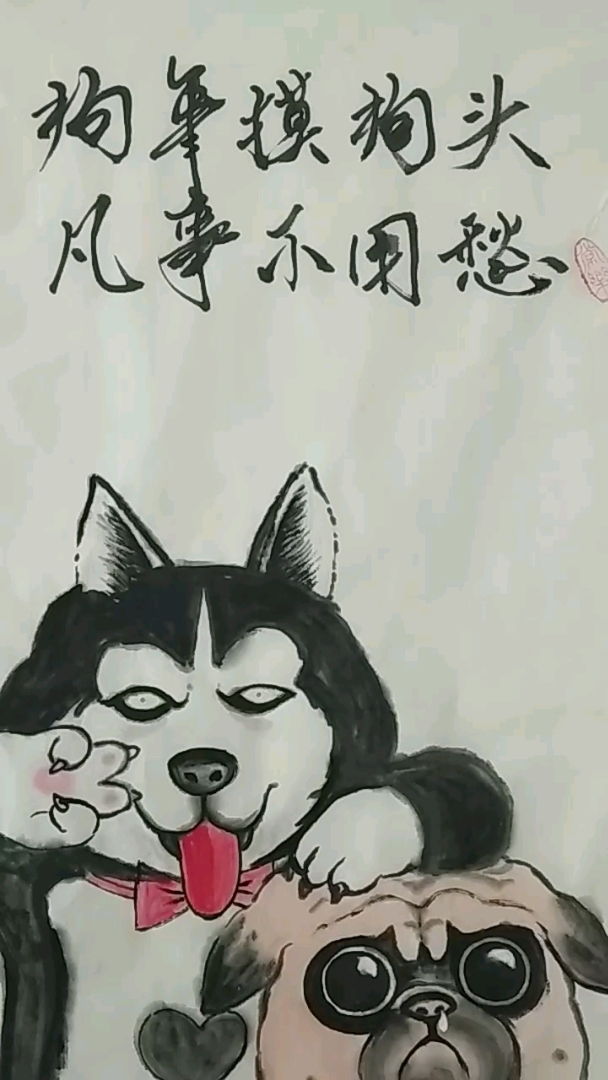 狗年摸狗头
凡事不用愁